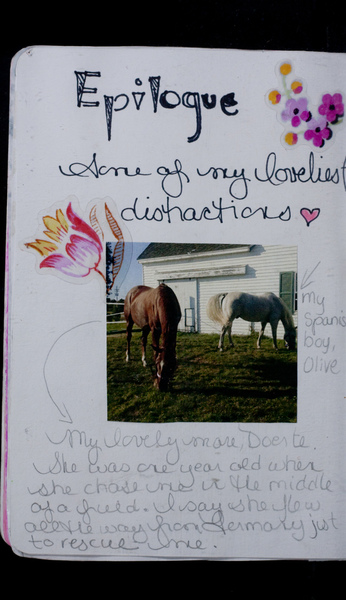 Epilogue
Some of my loveliest
distractions
my
Spanis
boy,
Olive
My lovely mare, Doerte.
She was one year old when
she chose me in the middle
of a field. I say she flew
all the way from Germany just
to rescue me.